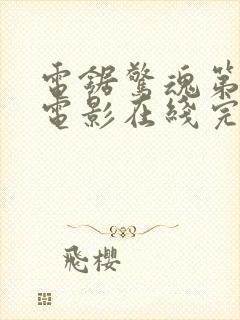 電鋸驚魂第
電影在綫完
飛櫻